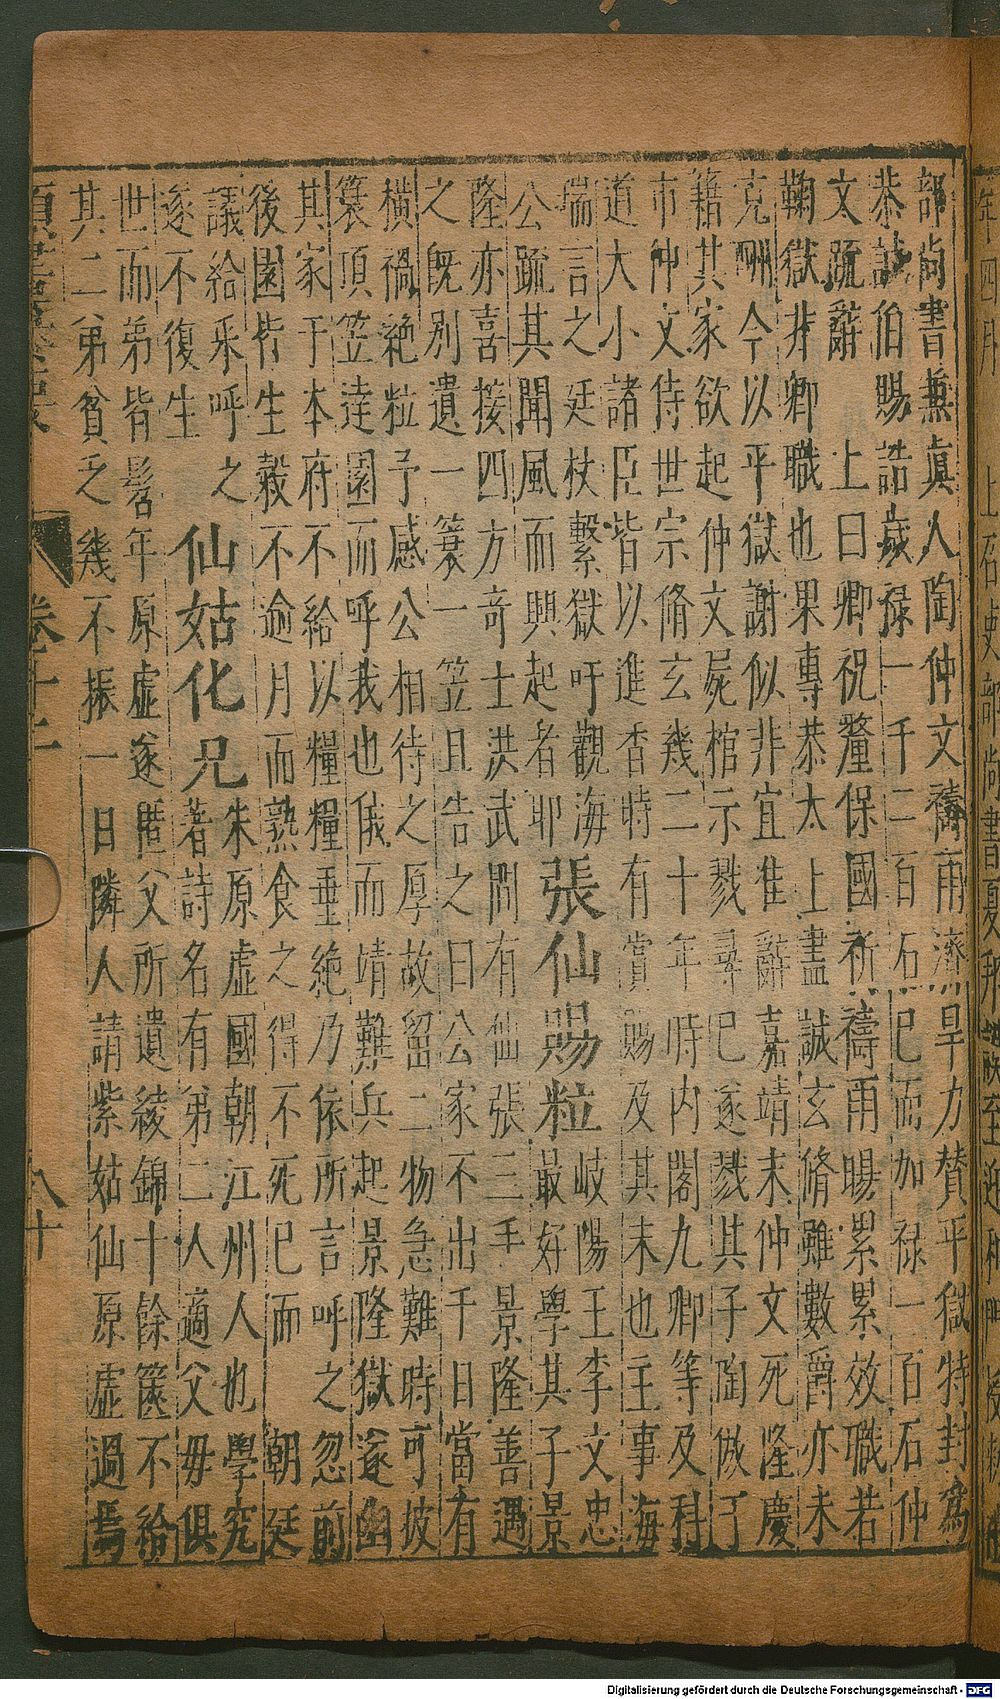 部尚書兼眞人陶仲文禱雨濟旱力賛平獄特封爲
恭誠伯賜誥歲禄一千二百石巳而加禄一百石仲
文疏辭　上曰卿祝釐保國祈禱雨暘累累效職若
鞠獄非卿職也果專恭太上盡誠玄脩雖數爵亦未
克酬今以平獄謝似非宜准辭嘉靖末仲文死隆慶
籍其家欲起仲文屍棺示戮尋巳遂戮其子陶倣于
市仲文侍世宗脩玄幾二十年時内閣九卿等及科
道大小諸臣皆以進香時有賞賜及其末也主事海
瑞言之廷杖繫獄吁觀海
公疏其聞風而興起者耶
張仙賜粒
岐陽王李文忠
最好學其子景
隆亦喜接四方竒士洪武間有仙張三丰景隆善遇
之既别遺一簔一笠且告之曰公家不出千日當有
横禍絶粒予感公相待之厚故留二物急難時可披
簔頂笠遶園而呼我也俄而靖難兵起景隆獄遂幽
其家于本府不給以糧糧垂絶乃依所言呼之忽前
後園皆生穀不逾月而熟食之得不死巳而　朝廷
議給乐呼之
遂不復生
仙姑化兄
朱原虚國朝江州人也學究
著詩名有弟二人適父毋俱
世而弟皆髫年原虚遂匿父所遺綾錦十餘篋不給
其二弟貧乏幾不振一日隣人請紫姑仙原虚過焉
卷十二
八十
Digitalisierung gefördert durch die Deutsche Forschungsgemeinschaft - DFG